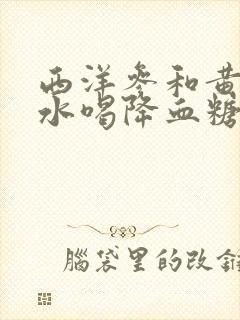 西洋参和黄
水喝降血糖
脑袋里的改